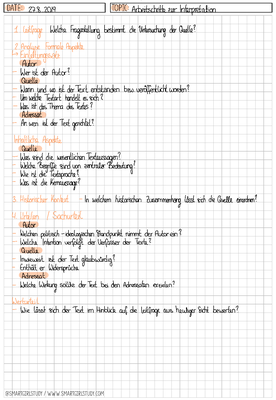 DATE: 27.8.2019 TOPIC: Arbeitsschritte zur Interpretation
1. Leitfrage Welche Fragestellung bestimmt die Untersuchung der Quelle?
2. Analyse Formale Aspekte
Autor
– Wer ist der Autor?
Quelle
– Wann und wo ist der Text entstanden bzw. veröffentlicht worden?
– Um welche Textart handelt es sich?
– Was ist das Thema des Textes?
Adressat
– An wen ist der Text gerichtet?
Inhaltliche Aspekte
Quelle
– Was sind die wesentlichen Textaussagen?
– Welche Begriffe sind von zentraler Bedeutung?
– Wie ist die Textsprache?
– Was ist die Kernaussage?
3. Historischer Kontext – In welchen historischen Zusammenhang lässt sich die Quelle einordnen?
4. Urteilen / Sachurteil
Autor
– Welchen politisch-ideologischen Standpunkt nimmt der Autor ein?
– Welche Intention verfolgt der Verfasser der Texte?
Quelle
– Inwieweit ist der Text glaubwürdig?
– Enthält er Widersprüche
Adressat
– Welche Wirkung sollte der Text bei den Adressaten erzielen?
Werturteil
– Wie lässt sich der Text im Hinblick auf die Leitfrage aus heutiger Sicht bewerten?
@SMARTGIRLSTUDY / WWW.SMARTGIRLSTUDY.COM